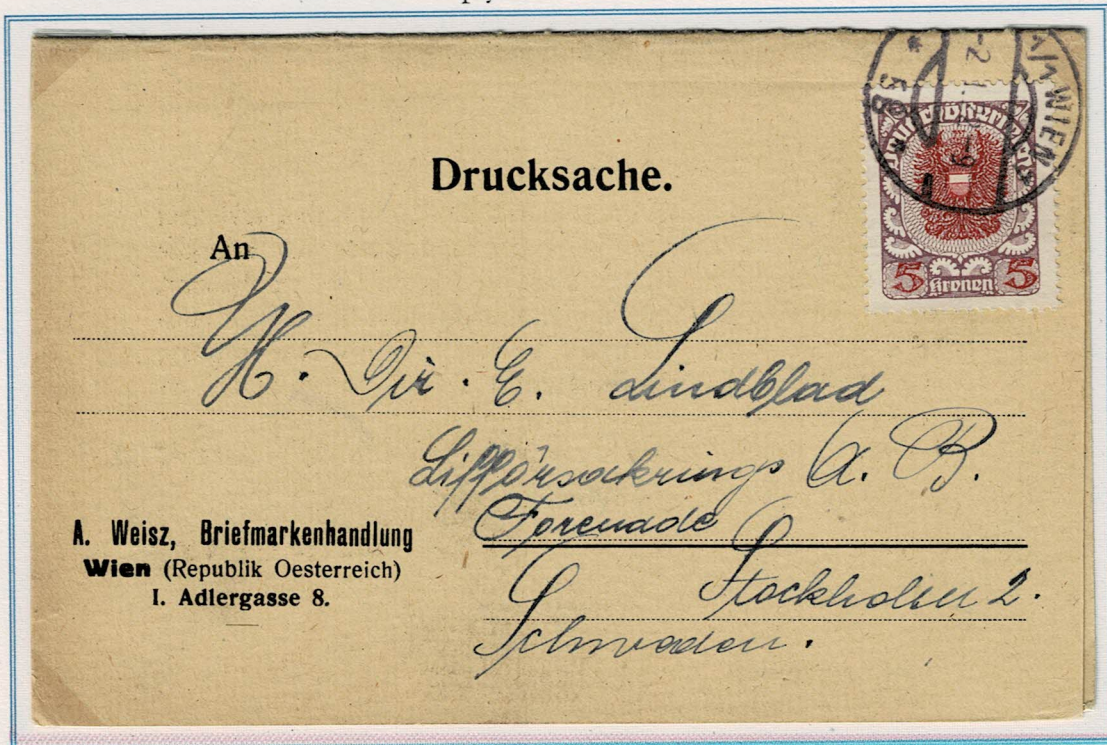 1/1 WIEN
* 5g *
Deutschösterreich
5 Kronen 5
Drucksache.
An
H. Dir. E. Lindblad
Lifförsäkrings A. B.
Forenade
Stockholm 2.
Schweden.
A. Weisz, Briefmarkenhandlung
Wien (Republik Oesterreich)
I. Adlergasse 8.